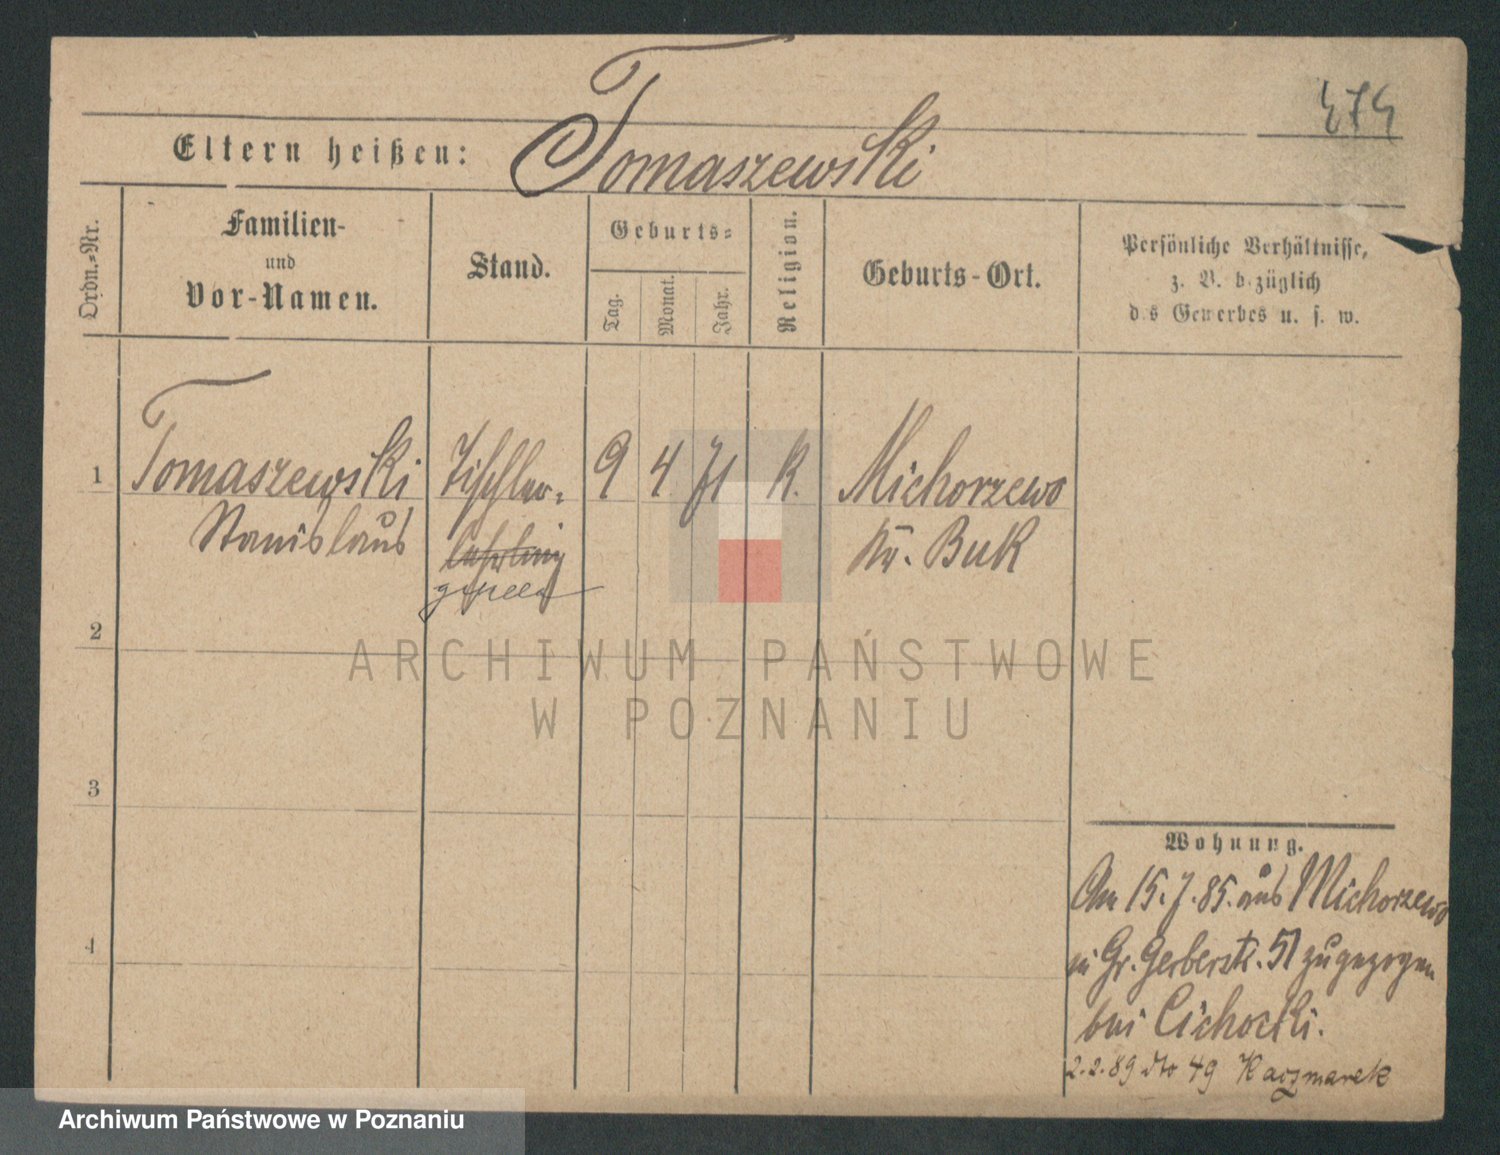 474
Eltern heißen: Tomaszewski
Ordn.-Nr.
Familien-
und
Vor-Namen.
Stand.
Geburts-
Tag.
Monat.
Jahr.
Religion.
Geburts-Ort.
Persönliche Verhältnisse,
z. B. bezüglich
des Gewerbes u. s. w.
1 Tomaszewski Tischler- 9 4 71 K. Michorzewo
Stanislaus lehrling Kr. Buk
gesell
2
ARCHIWUM PAŃSTWOWE
W POZNANIU
3
Wohnung.
Am 15.7.85. aus Michorzewo
4
Gr. Gerberstr. 51 zugezogen
bei Cichocki.
2.2.89 dto 49 Kaczmarek
Archiwum Państwowe w Poznaniu